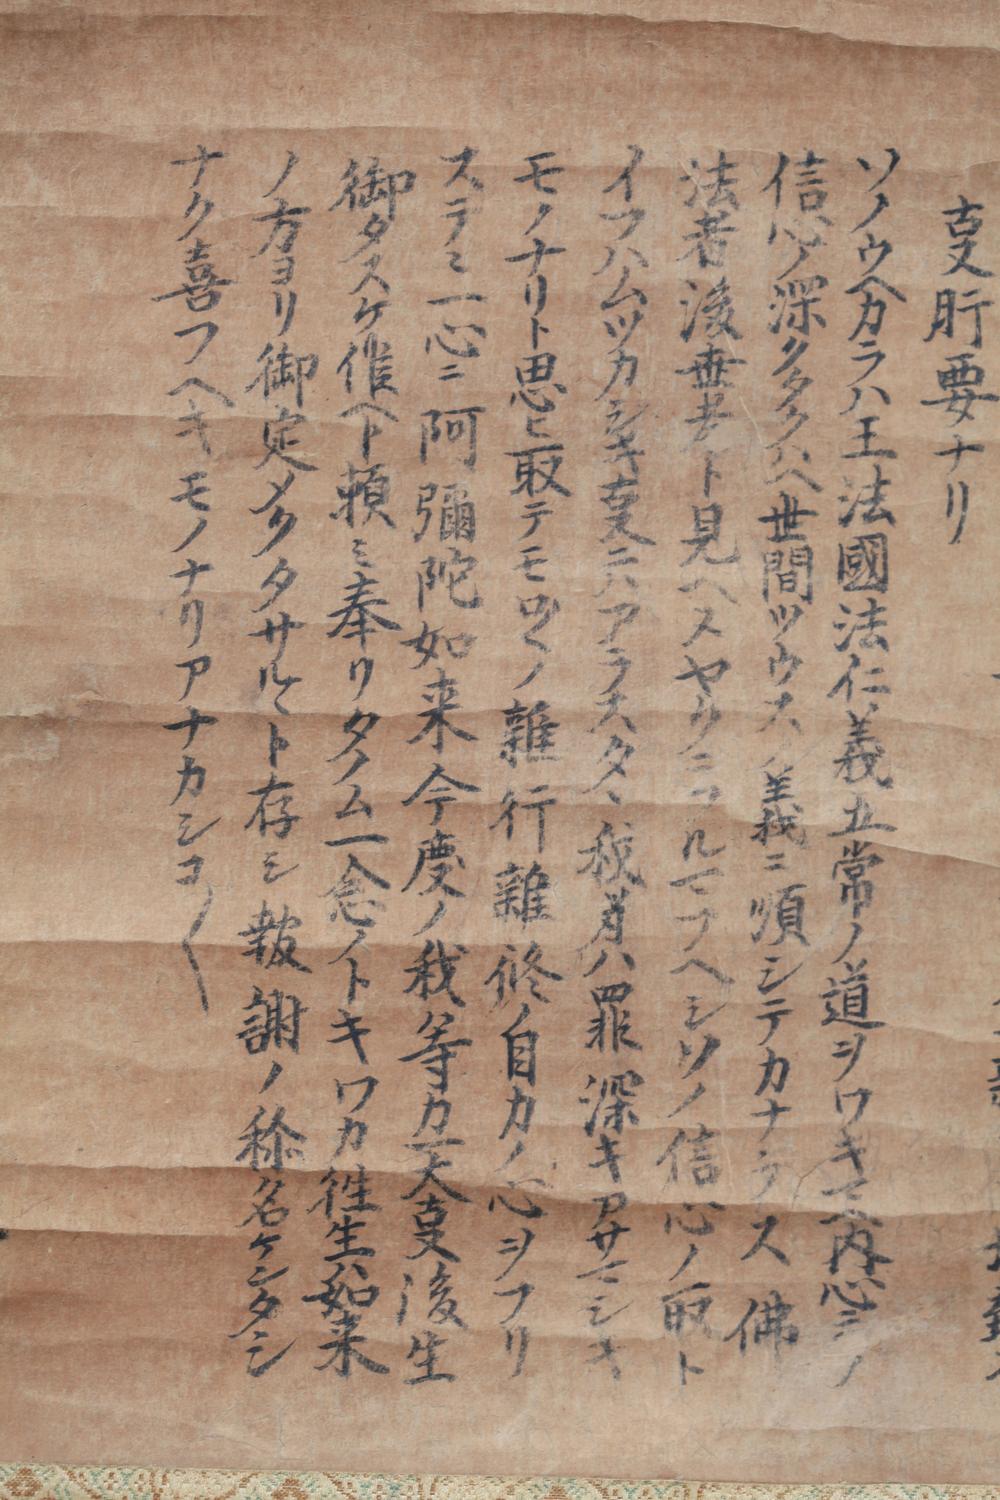 叓肝要ナリ
ソノウヘカラハ王法國法仁義五常ノ道ヲワキマヘ内心ニノ
信心ヲ深クタクハヘ世間ツウスノ義ニ順シテカナラス佛
法者後世者ト見ヘスヤウニフルマフヘシソノ信心ノ取ト
イフハムツカシキ叓ニハアラスタヽ我身ハ罪深キアサマシキ
モノナリト思ヒ取テモロ〱ノ雜行雜修自力ノ心ヲフリ
ステヽ一心ニ阿彌陀如来今度ノ我等カ一大叓後生
御タスケ候ヘト頼ミ奉リタノム一念ノトキワカ徃生ハ如来
ノ方ヨリ御定メクタサルヽト存シ報謝ノ称名ケンタシ
ナク喜フヘキモノナリアナカシコ〱